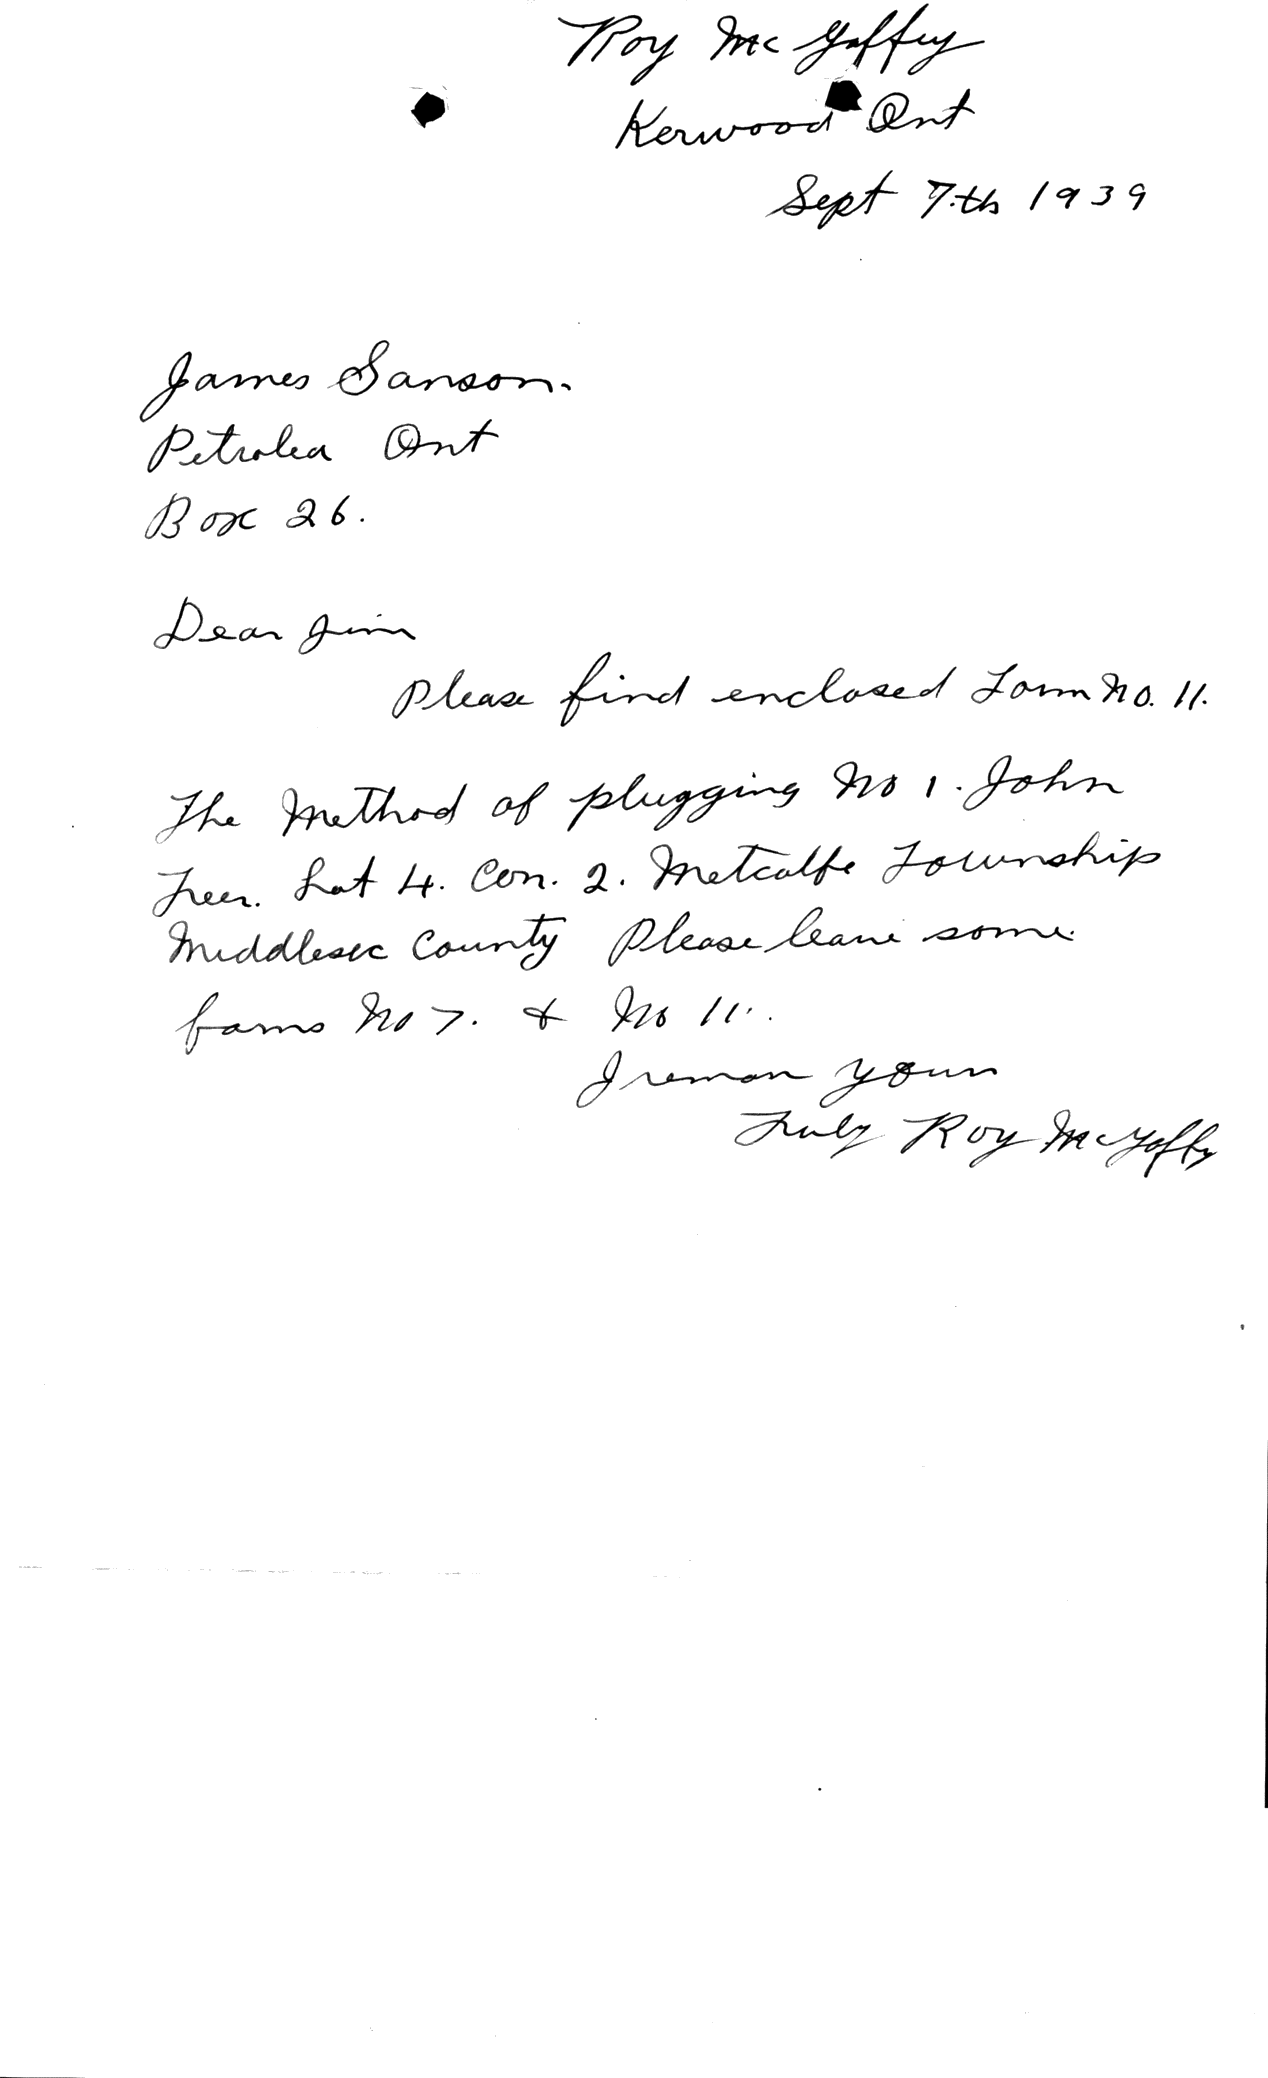 Roy Mc Gaffey
Kerwood Ont
Sept 7.th 1939
James Sanson.
Petrolea Ont
Box 26.
Dear Jim
Please find enclosed Form No. 11.
The Method of plugging No 1. John
Freer. Lot 4. Con. 2. Metcalfe Township
Middlesex County Please leave some
forms No 7. & No 11.
I reman yours
Truly Roy McGaffey